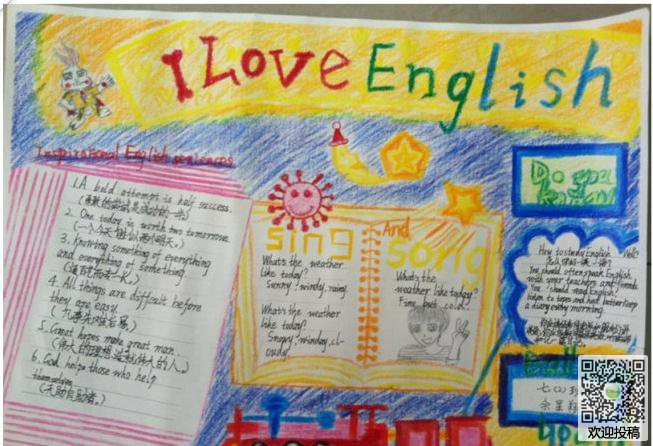 I Love English
Inspirational English sentences
1. A bold attempt is half success.
(勇敢的尝试是成功的一半。)
2. One today is worth two tomorrows.
(一个今天胜似两个明天。)
3. Knowing something of everything
and everything of something.
(通百艺而专一长。)
4. All things are difficult before
they are easy.
(凡事先难后易。)
5. Great hopes make great man.
(伟大的理想造就伟大的人。)
6. God helps those who help
themselves.
(天助自助者。)
sing And song
What's the weather
like today?
Sunny, windy, rainy
What's the weather
like today?
Snowy, winday, cl-
oudy
What's the
weather like today?
Fine, but cold.
Do you
know
How to study English well?
You should often speak English
with your teachers and friends.
You should read English,
listen to tapes and
a diary every morning.
七(2)班
欢迎投稿